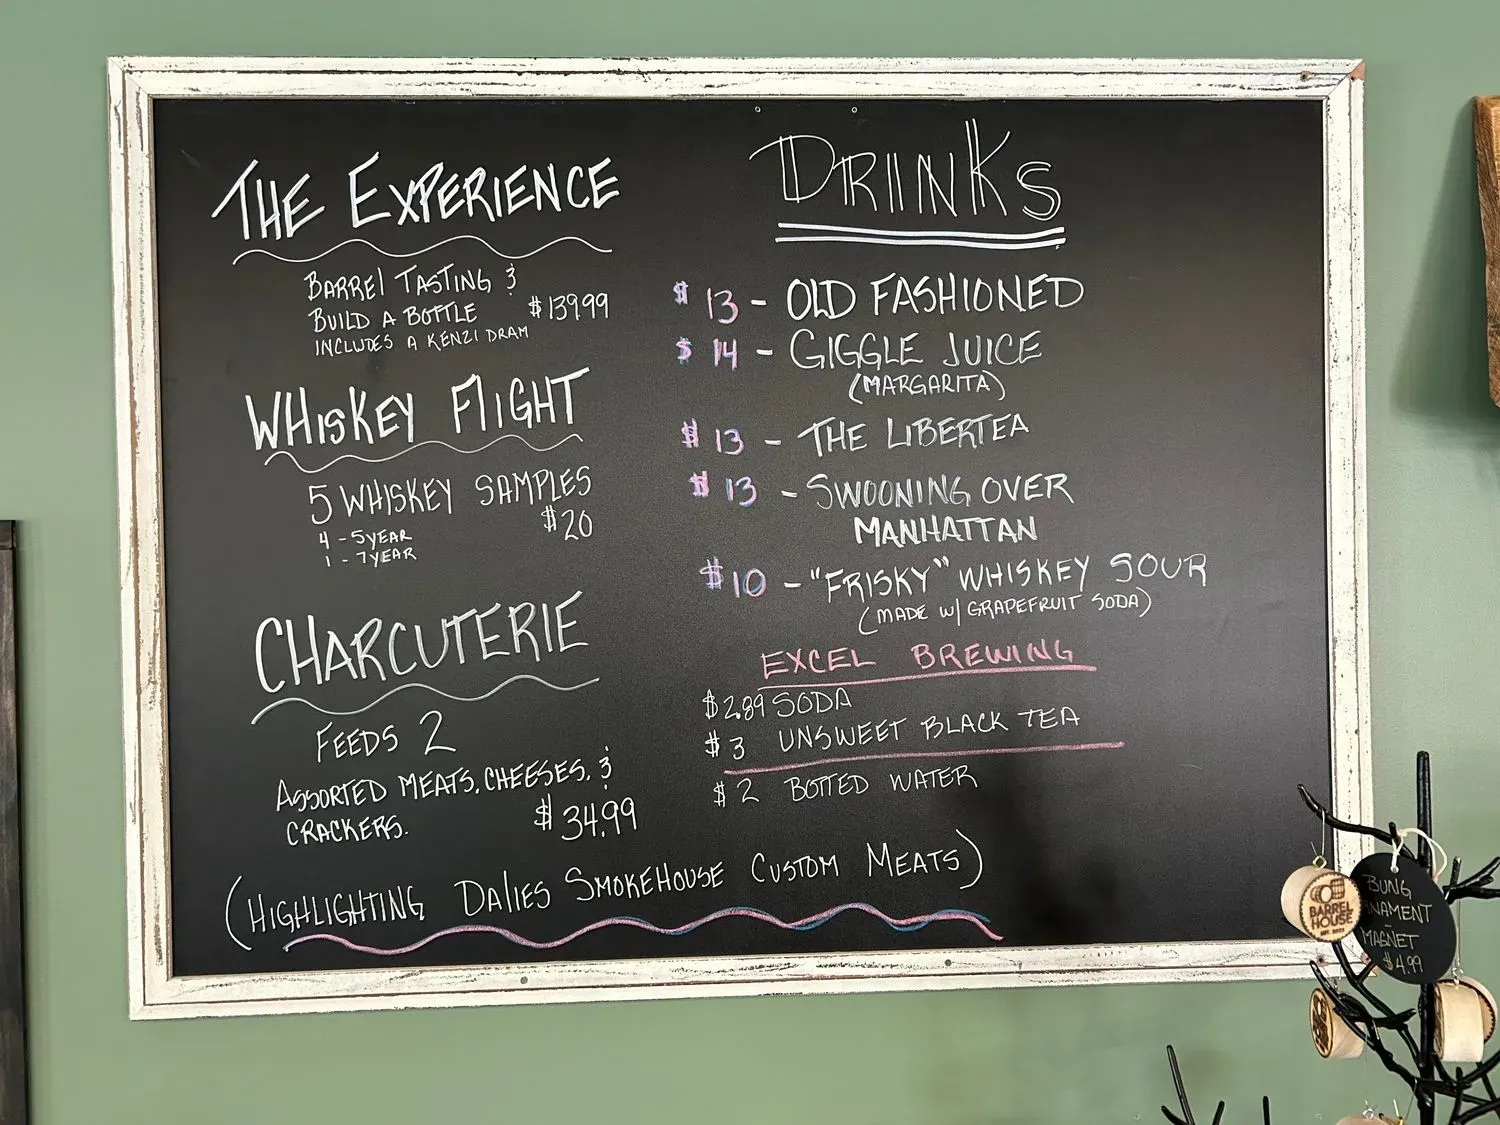 THE EXPERIENCE
BARREL TASTING &
BUILD A BOTTLE $139.99
INCLUDES A KENZI DRAM
WHISKEY FLIGHT
5 WHISKEY SAMPLES
$20
4 - 5 YEAR
1 - 7 YEAR
CHARCUTERIE
FEEDS 2
ASSORTED MEATS, CHEESES, &
CRACKERS. $34.99
(HIGHLIGHTING DALIES SMOKEHOUSE CUSTOM MEATS)
DRINKS
$13 - OLD FASHIONED
$14 - GIGGLE JUICE
(MARGARITA)
$13 - THE LIBERTEA
$13 - SWOONING OVER
MANHATTAN
$10 - "FRISKY" WHISKEY SOUR
(MADE W/ GRAPEFRUIT SODA)
EXCEL BREWING
$2.89 SODA
$3 UNSWEET BLACK TEA
$2 BOTTED WATER
BARREL
HOUSE
BUNG
NAMENT
-
MAGNET
$4.99